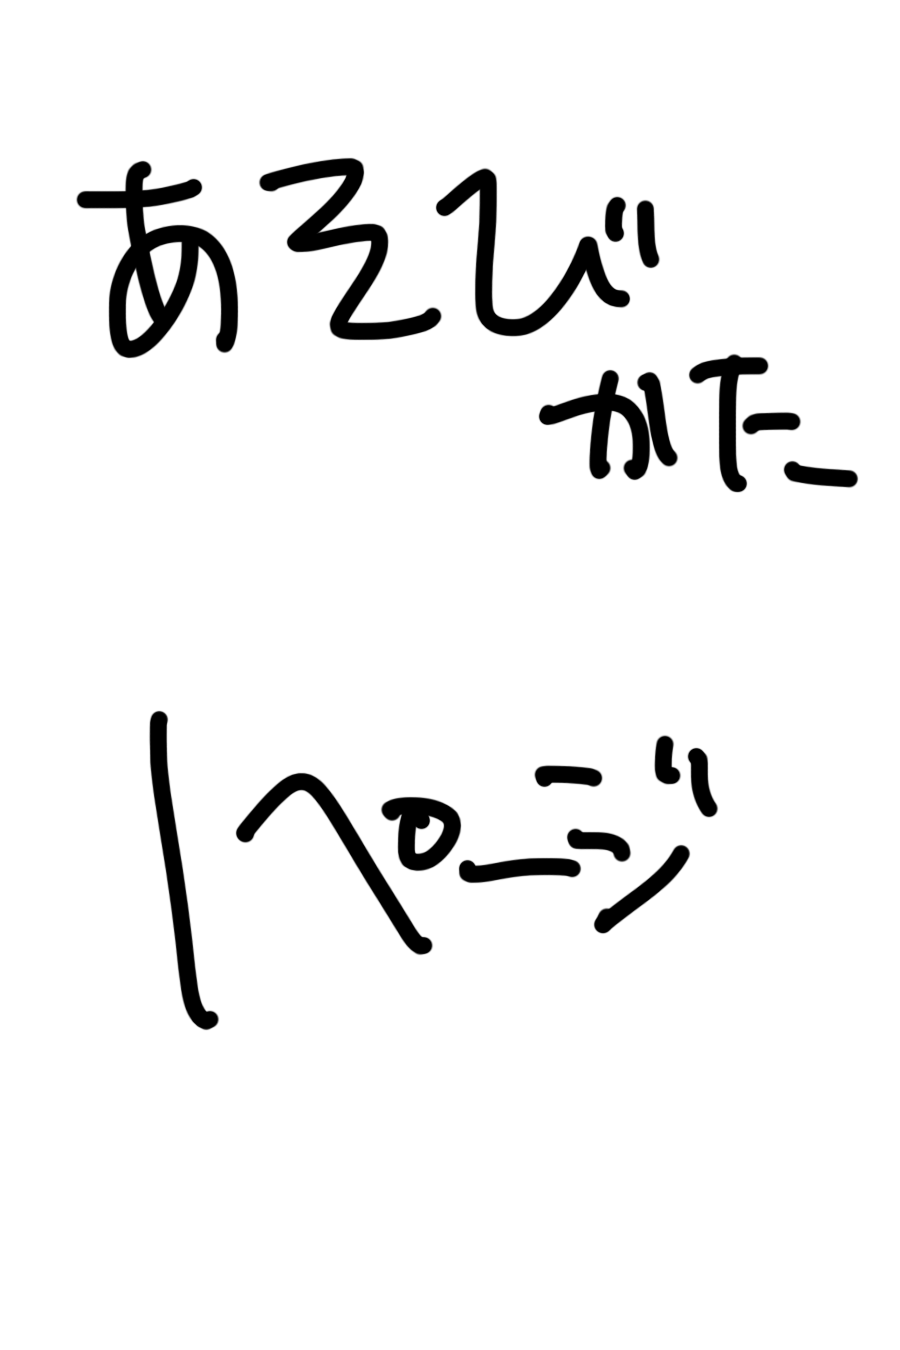 あそび
かた
1ページ